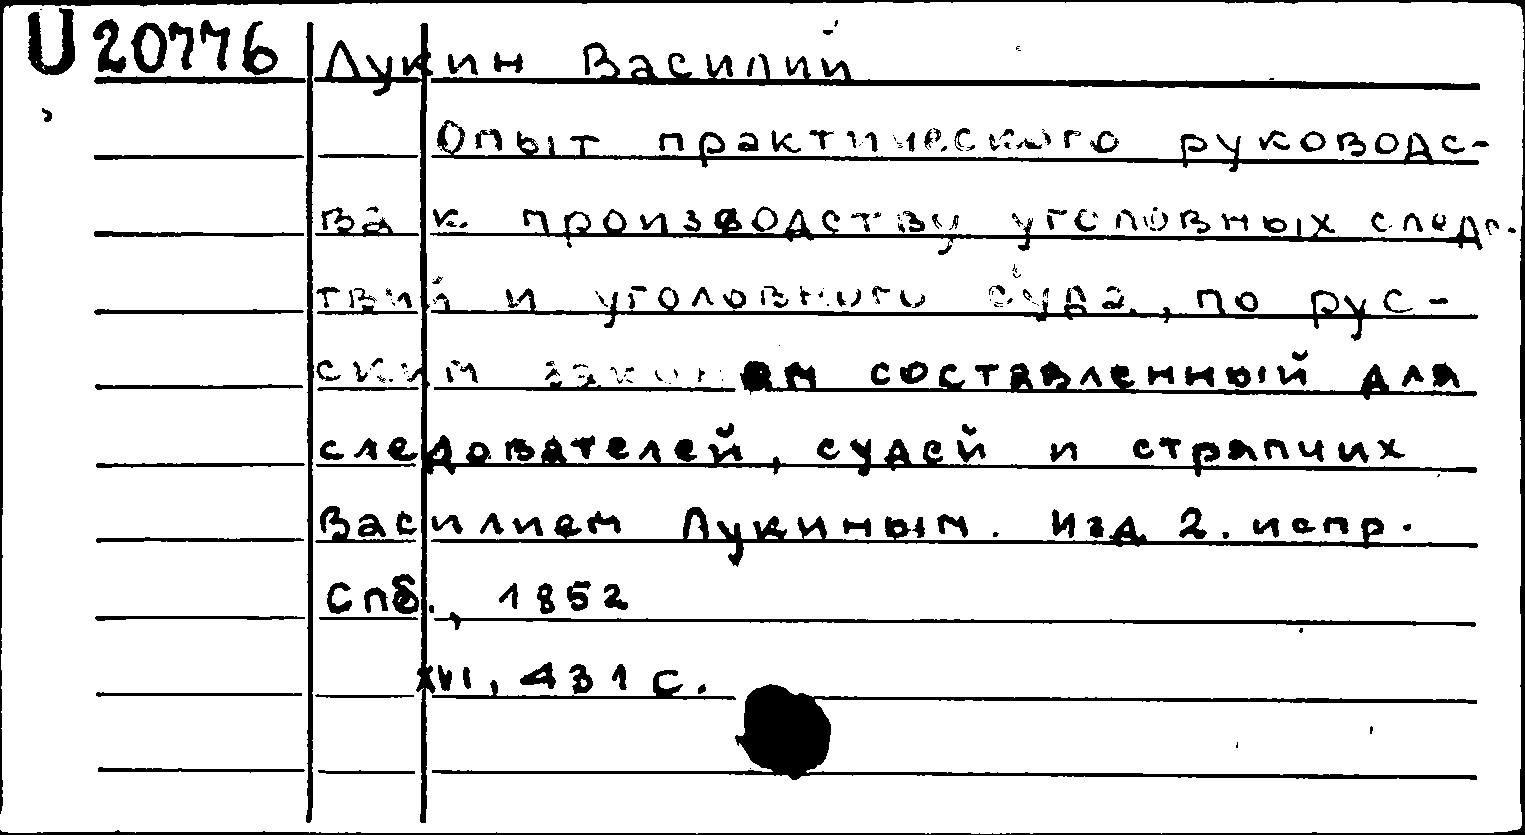 U 20776 Лукин Василий
Опыт практического руководс-
ва к производству уголовных следс-
твий и уголовного суда, по рус-
ским законам составленный для
следователей, судей и стряпчих
Василием Лукиным. Изд 2. испр.
Спб., 1852
XVI, 431 с.